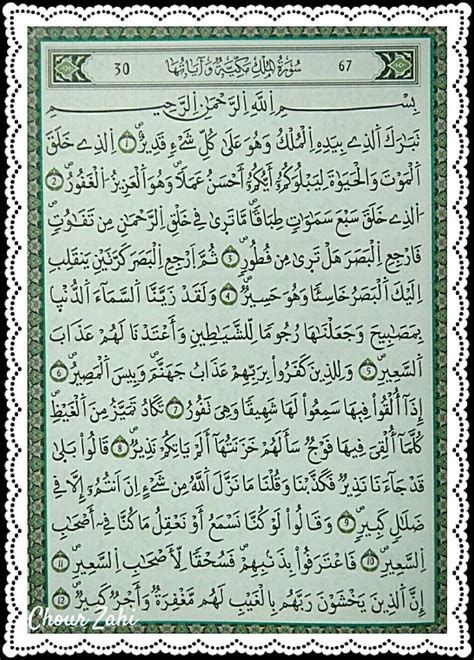 67 سُورَةُ الْمُلْكِ مَكِّيَّةٌ وَآيَاتُهَا 30
بِسْمِ اِللَّهِ اِلرَّحْمَٰنِ اِلرَّحِيمِ
تَبَٰرَكَ اَلذِے بِيَدِهِ اِلْمُلْكُ وَهُوَ عَلَىٰ كُلِّ شَےْءٖ قَدِيرٌ 1 اِلذِے خَلَقَ
اَلْمَوْتَ وَالْحَيَوٰةَ لِيَبْلُوَكُمُۥٓ أَيُّكُمُۥٓ أَحْسَنُ عَمَلًا وَهُوَ اَلْعَزِيزُ اُلْغَفُورُ 2
اُلذِے خَلَقَ سَبْعَ سَمَٰوَٰتٖ طِبَاقًا مَّا تَر۪ىٰ فِے خَلْقِ اِلرَّحْمَٰنِ مِن تَفَٰوُتٖ
فَارْجِعِ اِلْبَصَرَ هَلْ تَر۪ىٰ مِن فُطُورٖ 3 ثُمَّ اَرْجِعِ اِلْبَصَرَ كَرَّتَيْنِ يَنقَلِبِ
اِلَيْكَ اَلْبَصَرُ خَاسِئًا وَهُوَ حَسِيرٌ 4 وَلَقَدْ زَيَّنَّا اَلسَّمَآءَ اَلدُّنْيَا
بِمَصَٰبِيحَ وَجَعَلْنَٰهَا رُجُومًا لِّلشَّيَٰطِينِ وَأَعْتَدْنَا لَهُمْ عَذَابَ
اَلسَّعِيرِ 5 وَلِلذِينَ كَفَرُواْ بِرَبِّهِمْ عَذَابُ جَهَنَّمَ وَبِيسَ اَلْمَصِيرُ 6
إِذَآ أُلْقُواْ فِيهَا سَمِعُواْ لَهَا شَهِيقًا وَهِيَ تَفُورُ 7 تَكَادُ تَمَيَّزُ مِنَ اَلْغَيْظِ
كُلَّمَآ أُلْقِيَ فِيهَا فَوْجٌ سَأَلَهُمْ خَزَنَتُهَآ أَلَمْ يَاتِكُمْ نَذِيرٌ 8 قَالُواْ بَلَىٰ
قَدْ جَآءَنَا نَذِيرٌ فَكَذَّبْنَا وَقُلْنَا مَا نَزَّلَ اَللَّهُ مِن شَےْءٍ اِنَ اَنتُمُۥٓ إِلَّا فِے
ضَلَٰلٖ كَبِيرٖ 9 وَقَالُواْ لَوْ كُنَّا نَسْمَعُ أَوْ نَعْقِلُ مَا كُنَّا فِےٓ أَصْحَٰبِ
اِلسَّعِيرِ 10 فَاعْتَرَفُواْ بِذَنۢبِهِمْ فَسُحْقًا لِّأَصْحَٰبِ اِلسَّعِيرِ 11
إِنَّ اَلذِينَ يَخْشَوْنَ رَبَّهُم بِالْغَيْبِ لَهُم مَّغْفِرَةٌ وَأَجْرٌ كَبِيرٌ 12
Chour Zahi